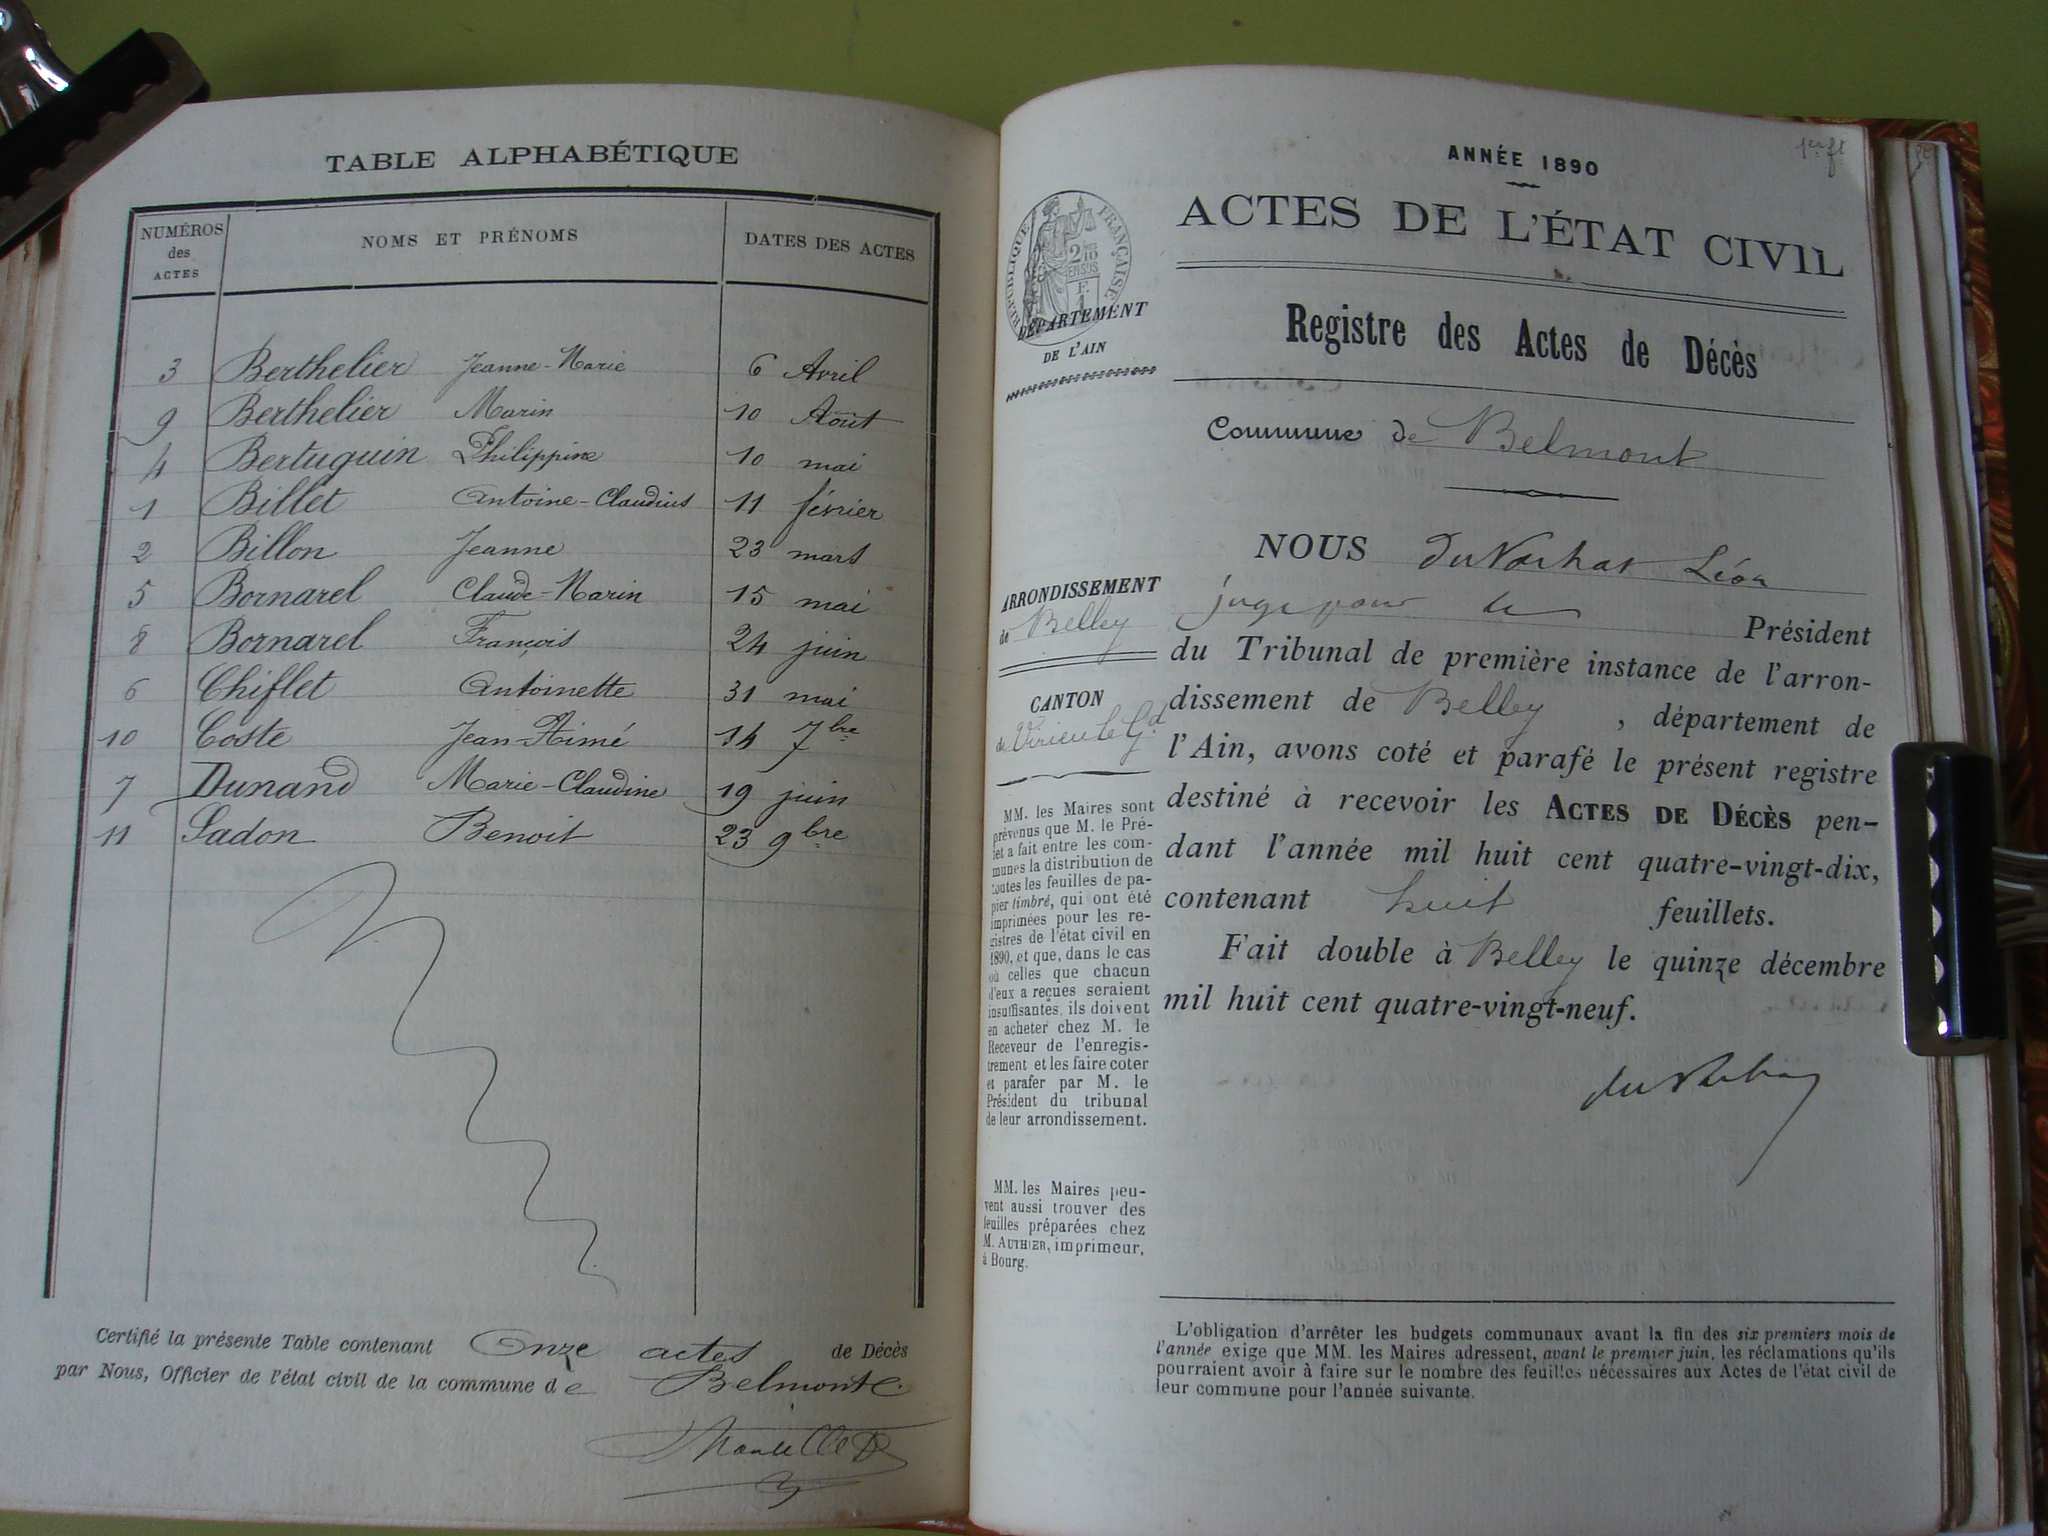 TABLE ALPHABÉTIQUE
NUMÉROS des ACTES NOMS ET PRÉNOMS DATES DES ACTES
3 Berthelier Jeanne-Marie 6 Avril
9 Berthelier Marin 10 Août
4 Bertuguin Philippine 10 mai
1 Billet Antoine-Claudius 11 février
2 Billon Jeanne 23 mars
5 Bornarel Claude-Marin 15 mai
8 Bornarel François 24 juin
6 Chiflet Antoinette 31 mai
10 Coste Jean-Aimé 14 7bre
7 Dunand Marie-Claudine 19 juin
11 Ladon Benoit 23 9bre
Certifié la présente Table contenant Onze actes de Décès
par Nous, Officier de l'état civil de la commune de Belmont.
1er ft
ANNÉE 1890
ACTES DE L'ÉTAT CIVIL
RÉPUBLIQUE FRANÇAISE
2/10 EN SUS
F. 1
DÉPARTEMENT
DE L'AIN
Registre des Actes de Décès
Commune de Belmont
ARRONDISSEMENT
de Belley
CANTON
de Virieu le Gd
MM. les Maires sont
prévenus que M. le Pré-
fet a fait entre les com-
munes la distribution de
toutes les feuilles de pa-
pier timbré, qui ont été
imprimées pour les re-
gistres de l'état civil en
1890, et que, dans le cas
où celles que chacun
d'eux a reçues seraient
insuffisantes, ils doivent
en acheter chez M. le
Receveur de l'enregis-
trement et les faire coter
et parafer par M. le
Président du tribunal
de leur arrondissement.
MM. les Maires peu-
vent aussi trouver des
feuilles préparées chez
M. AUTHIER, imprimeur,
à Bourg.
NOUS Léon
juge pour le Président
du Tribunal de première instance de l'arron-
dissement de Belley, département de
l'Ain, avons coté et parafé le présent registre
destiné à recevoir les ACTES DE DÉCÈS pen-
dant l'année mil huit cent quatre-vingt-dix,
contenant huit feuillets.
Fait double à Belley le quinze décembre
mil huit cent quatre-vingt-neuf.
L'obligation d'arrêter les budgets communaux avant la fin des six premiers mois de
l'année exige que MM. les Maires adressent, avant le premier juin, les réclamations qu'ils
pourraient avoir à faire sur le nombre des feuilles nécessaires aux Actes de l'état civil de
leur commune pour l'année suivante.